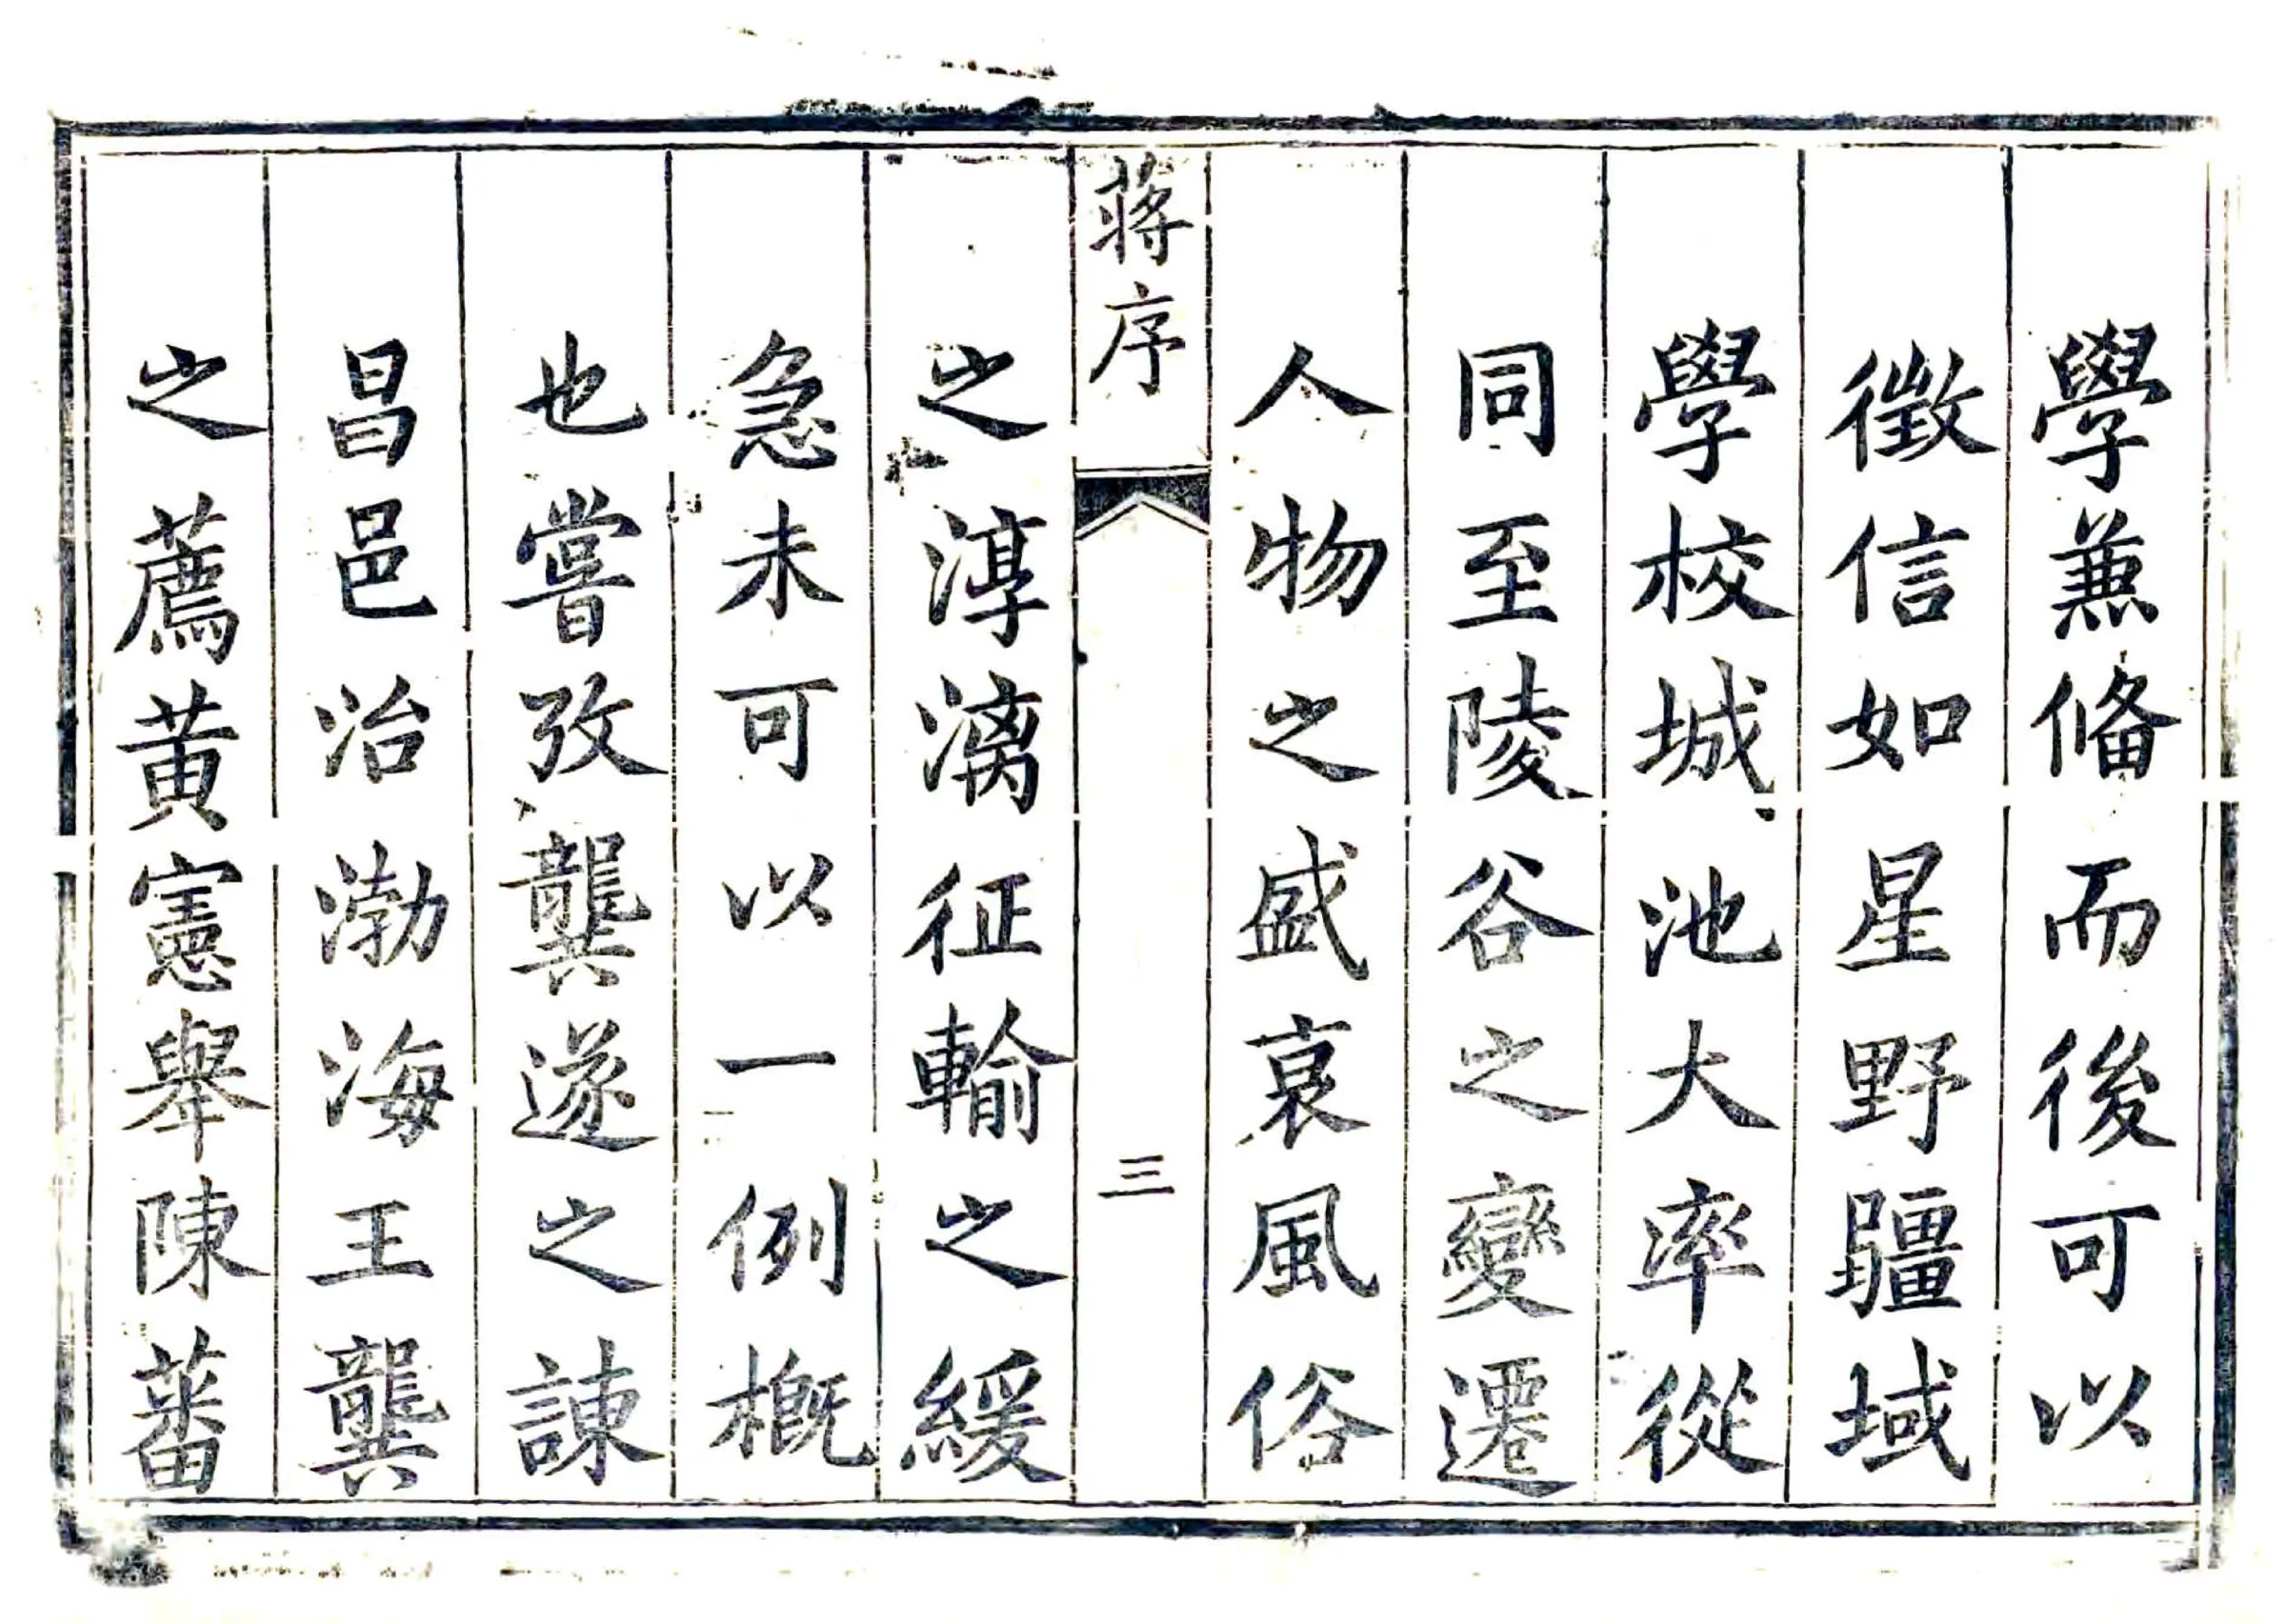 學兼俻而後可以
徵信如星野疆域
學校城池大率從
同至陵谷之變遷
人物之盛衰風俗
蔣序
三
之淳漓征輸之緩
急未可以一例概
也嘗攷龔遂之諫
昌邑治渤海王龔
之薦黄憲舉陳蕃